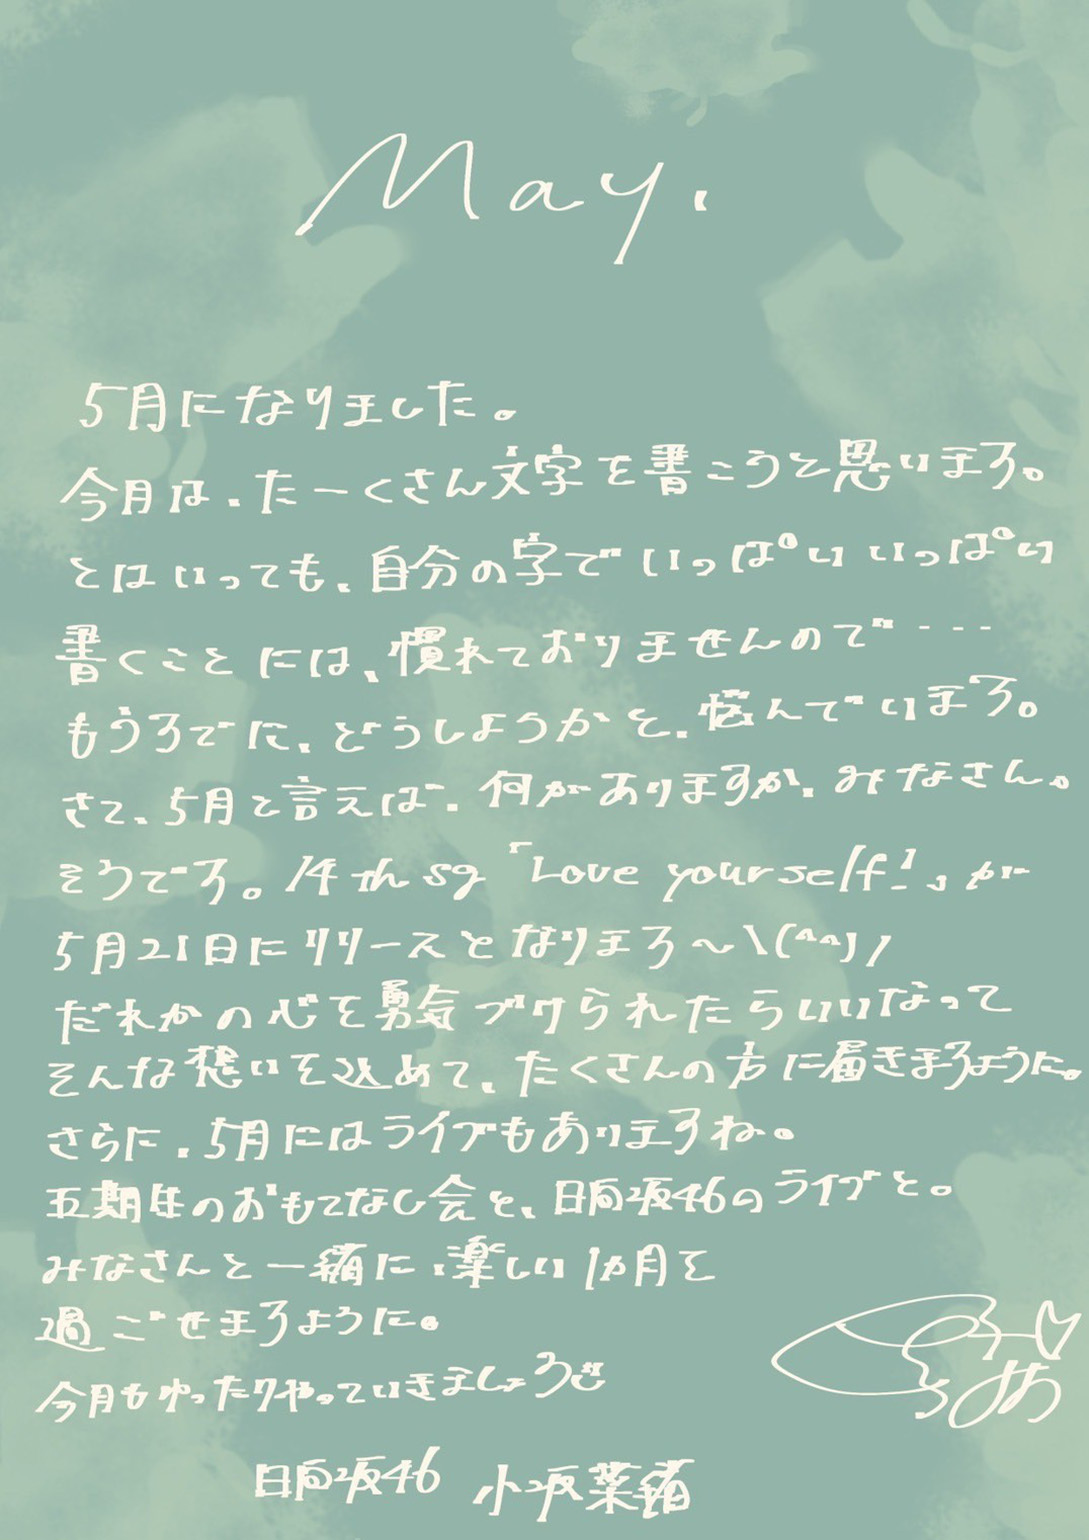 May.
5月になりました。
今月は、たーくさん文字を書こうと思います。
とはいっても、自分の字でいっぱいいっぱい
書くことには、慣れておりませんので…
もうすでに、どうしようかと、悩んでいます。
さて、5月と言えば、何がありますか、みなさん。
そうです。14th sg「Love yourself!」が
5月21日にリリースとなります〜\(^^)/
だれかの心を勇気づけられたらいいなって
そんな想いを込めて、たくさんの方に届きますように。
さらに、5月にはライブもありますね。
五期生のおもてなし会と、日向坂46のライブと。
みなさんと一緒に、楽しい1カ月を
過ごせますように。
今月もゆったりやっていきましょう
日向坂46 小坂菜緒